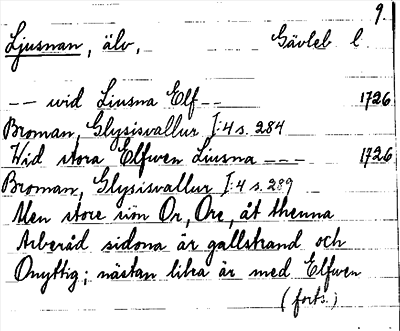 9.
Ljusnan, älv, Gävleb l.
-- wid Liusna Elf -- 1726
Broman, Glysisvallur I:4 s. 284
Wid stora Elfwen Liusna --- 1726
Broman, Glysisvallur I:4 s. 289
Men store sim Or, Ore, åt thenna
Arberåd sidona är gallstrand och
Onyttig; nästan lika är med Elfwen
(forts.)